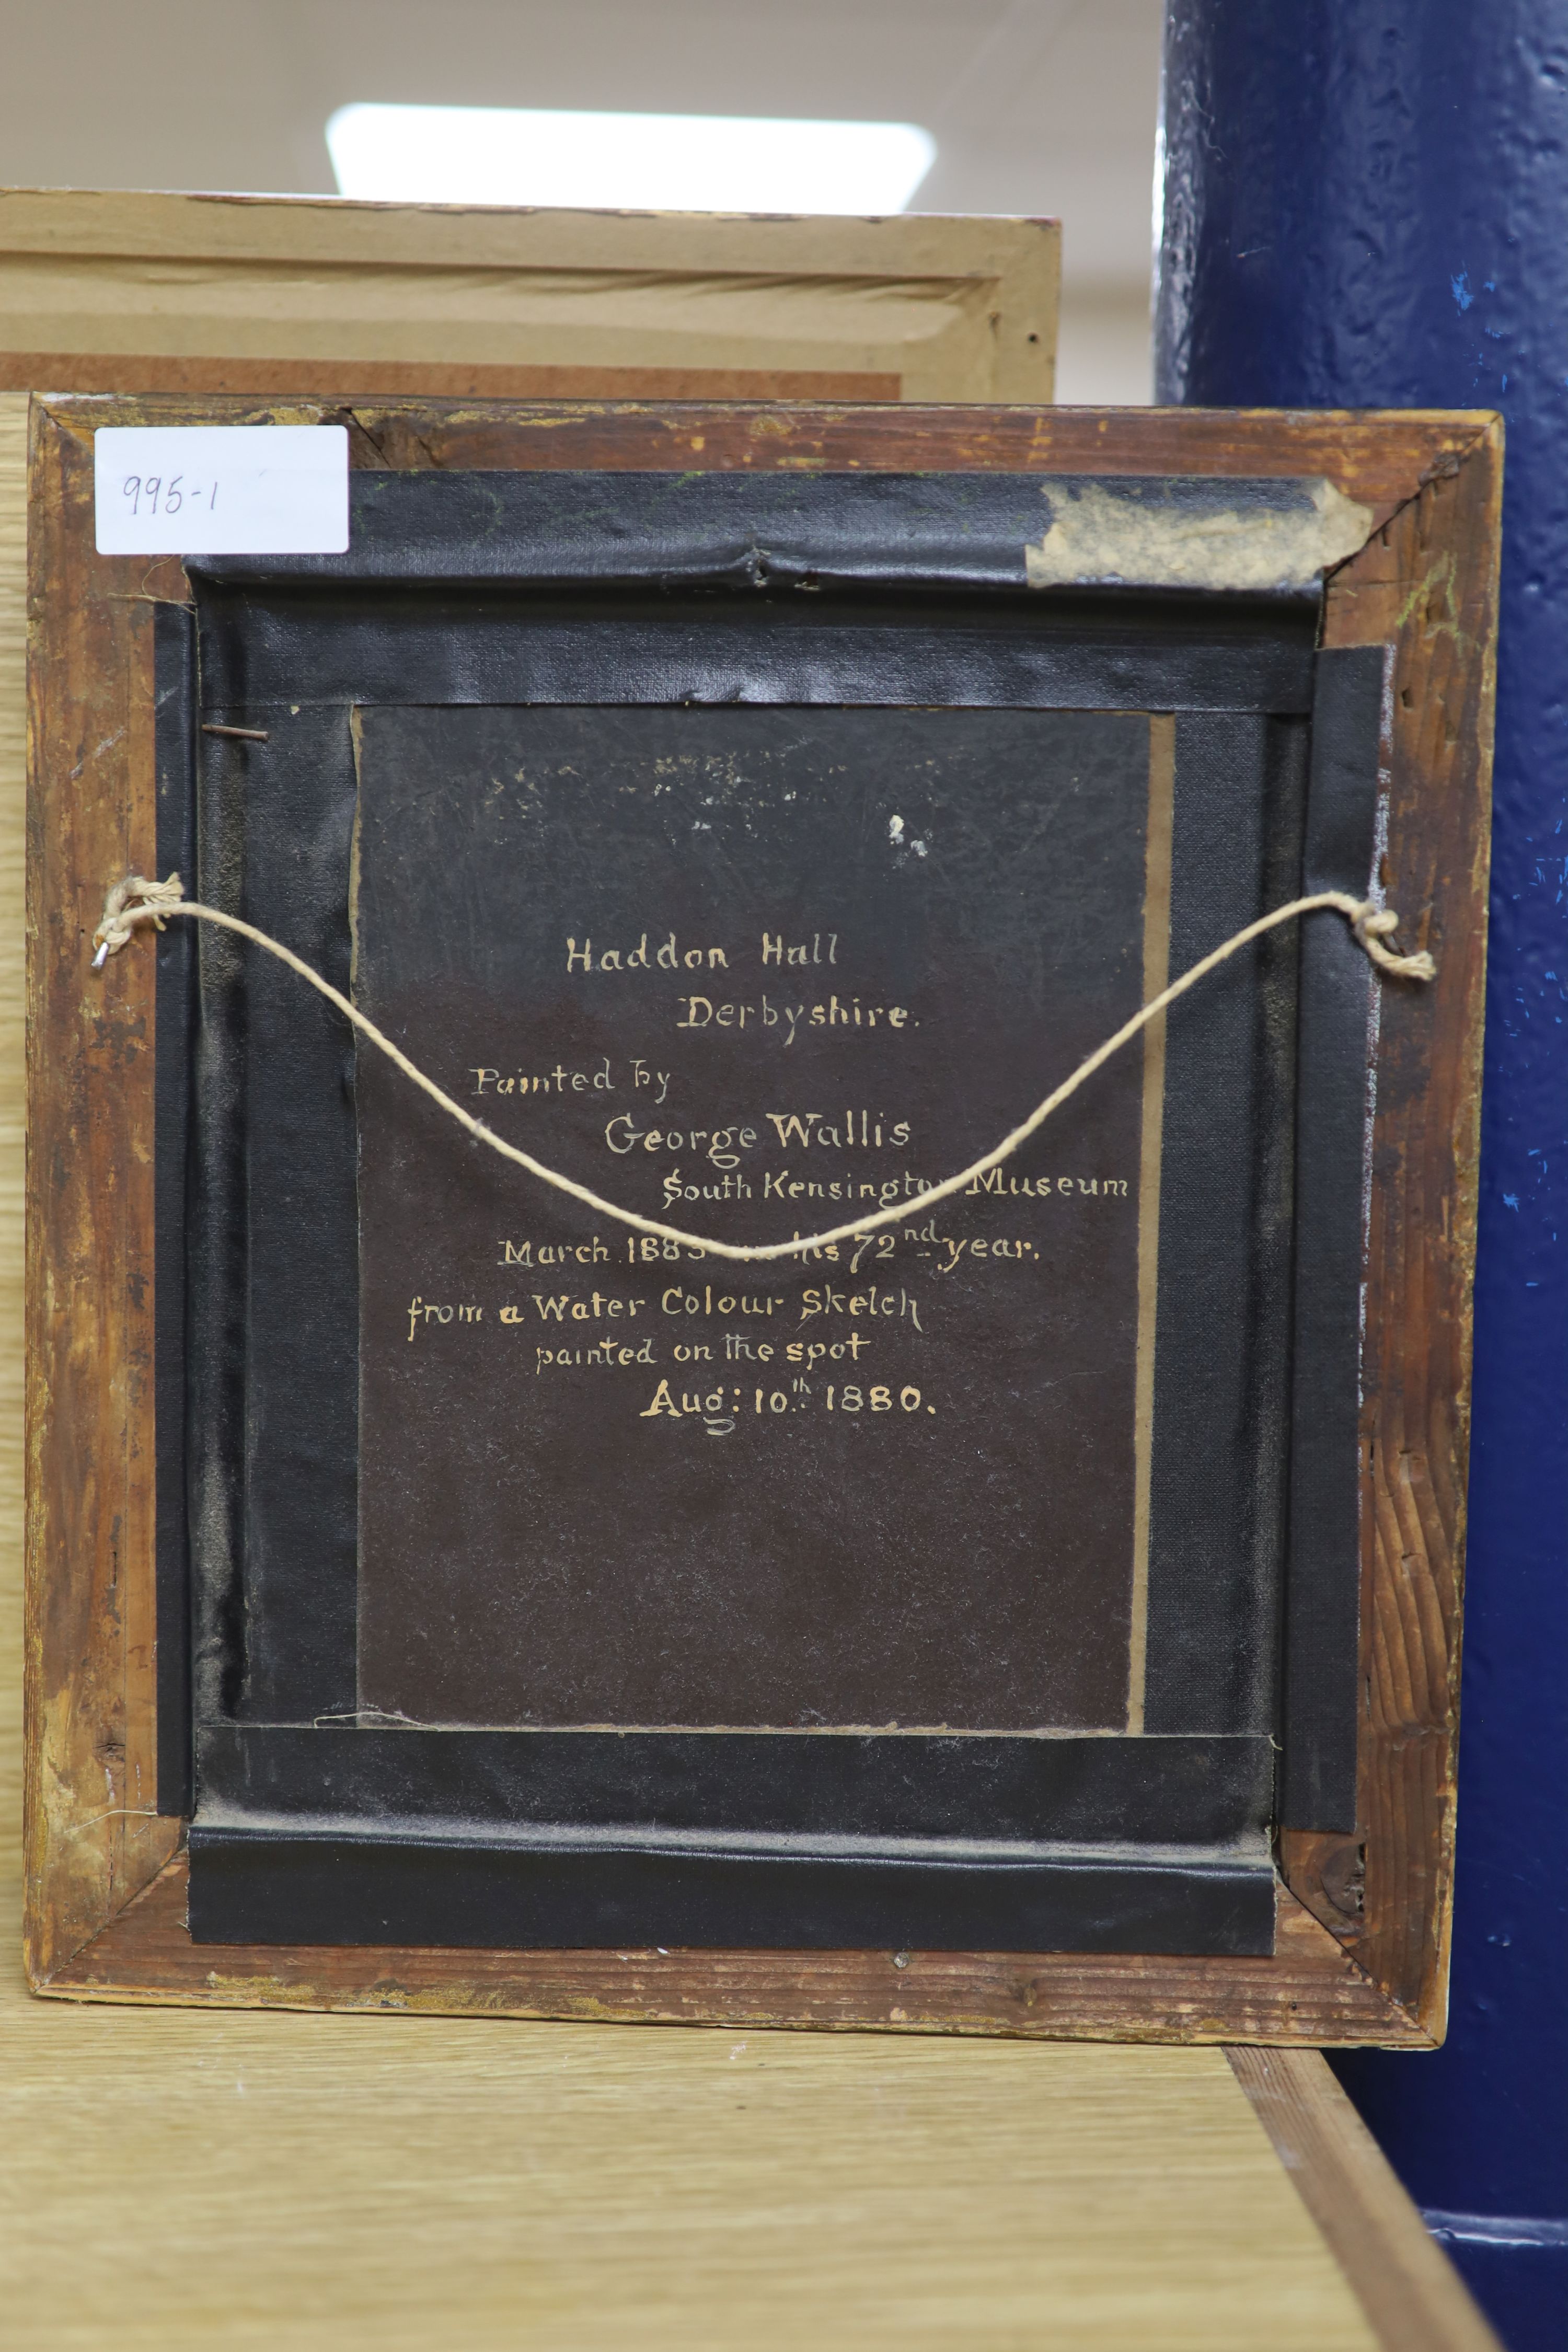 995-1
Haddon Hall
Derbyshire.
Painted by
George Wallis
South Kensington Museum
March 1883 his 72nd year.
from a Water Colour Sketch
painted on the spot
Aug: 10th 1880.